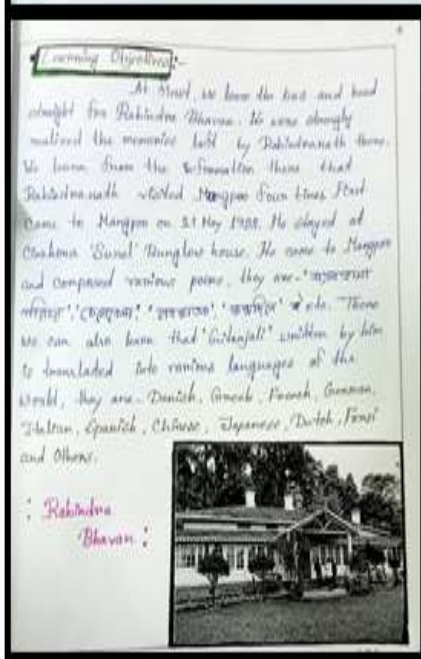 4
Learning Objectives:-
At first, we leave the bus and head
straight for Rabindra Bhavan. We were strongly
realized the memories left by Rabindranath there.
We learn from the information there that
Rabindranath visited Mangpoo four times. First
Came to Mangpoo on 21 May 1938. He stayed at
'Surel' Bunglow house. He came to Mangpoo
and composed various poems, they are-
'ছেলেবেলা', 'নবজাতক', etc. There
we can also learn that 'Gitanjali' written by him
is translated into various languages of the
World, they are- Danish, Greek, French, German,
Italian, Spanish, Chinese, Japanese, Dutch, Farsi
and Others.
: Rabindra
Bhavan :